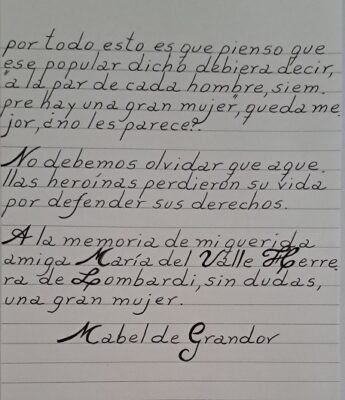 por todo esto es que pienso que
ese popular dicho debiera decir,
"a la par de cada hombre, siem.
pre hay una gran mujer", queda me
jor, ¿no les parece?.
No debemos olvidar que aque.
llas heroínas perdierón su vida
por defender sus derechos.
A la memoria de mi querida
amiga María del Válle Herre
ra de Lombardi, sin dudas,
una gran mujer.
Mabel de Grandov